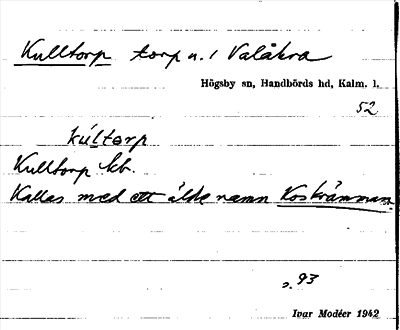 Kulltorp torp u. 1 Valåkra
Högsby sn, Handbörds hd, Kalm. l.
52
kúltorp
Kulltorp kb.
Kallas med ett äldre namn Koskrämman.
s. 93
Ivar Modéer 1942